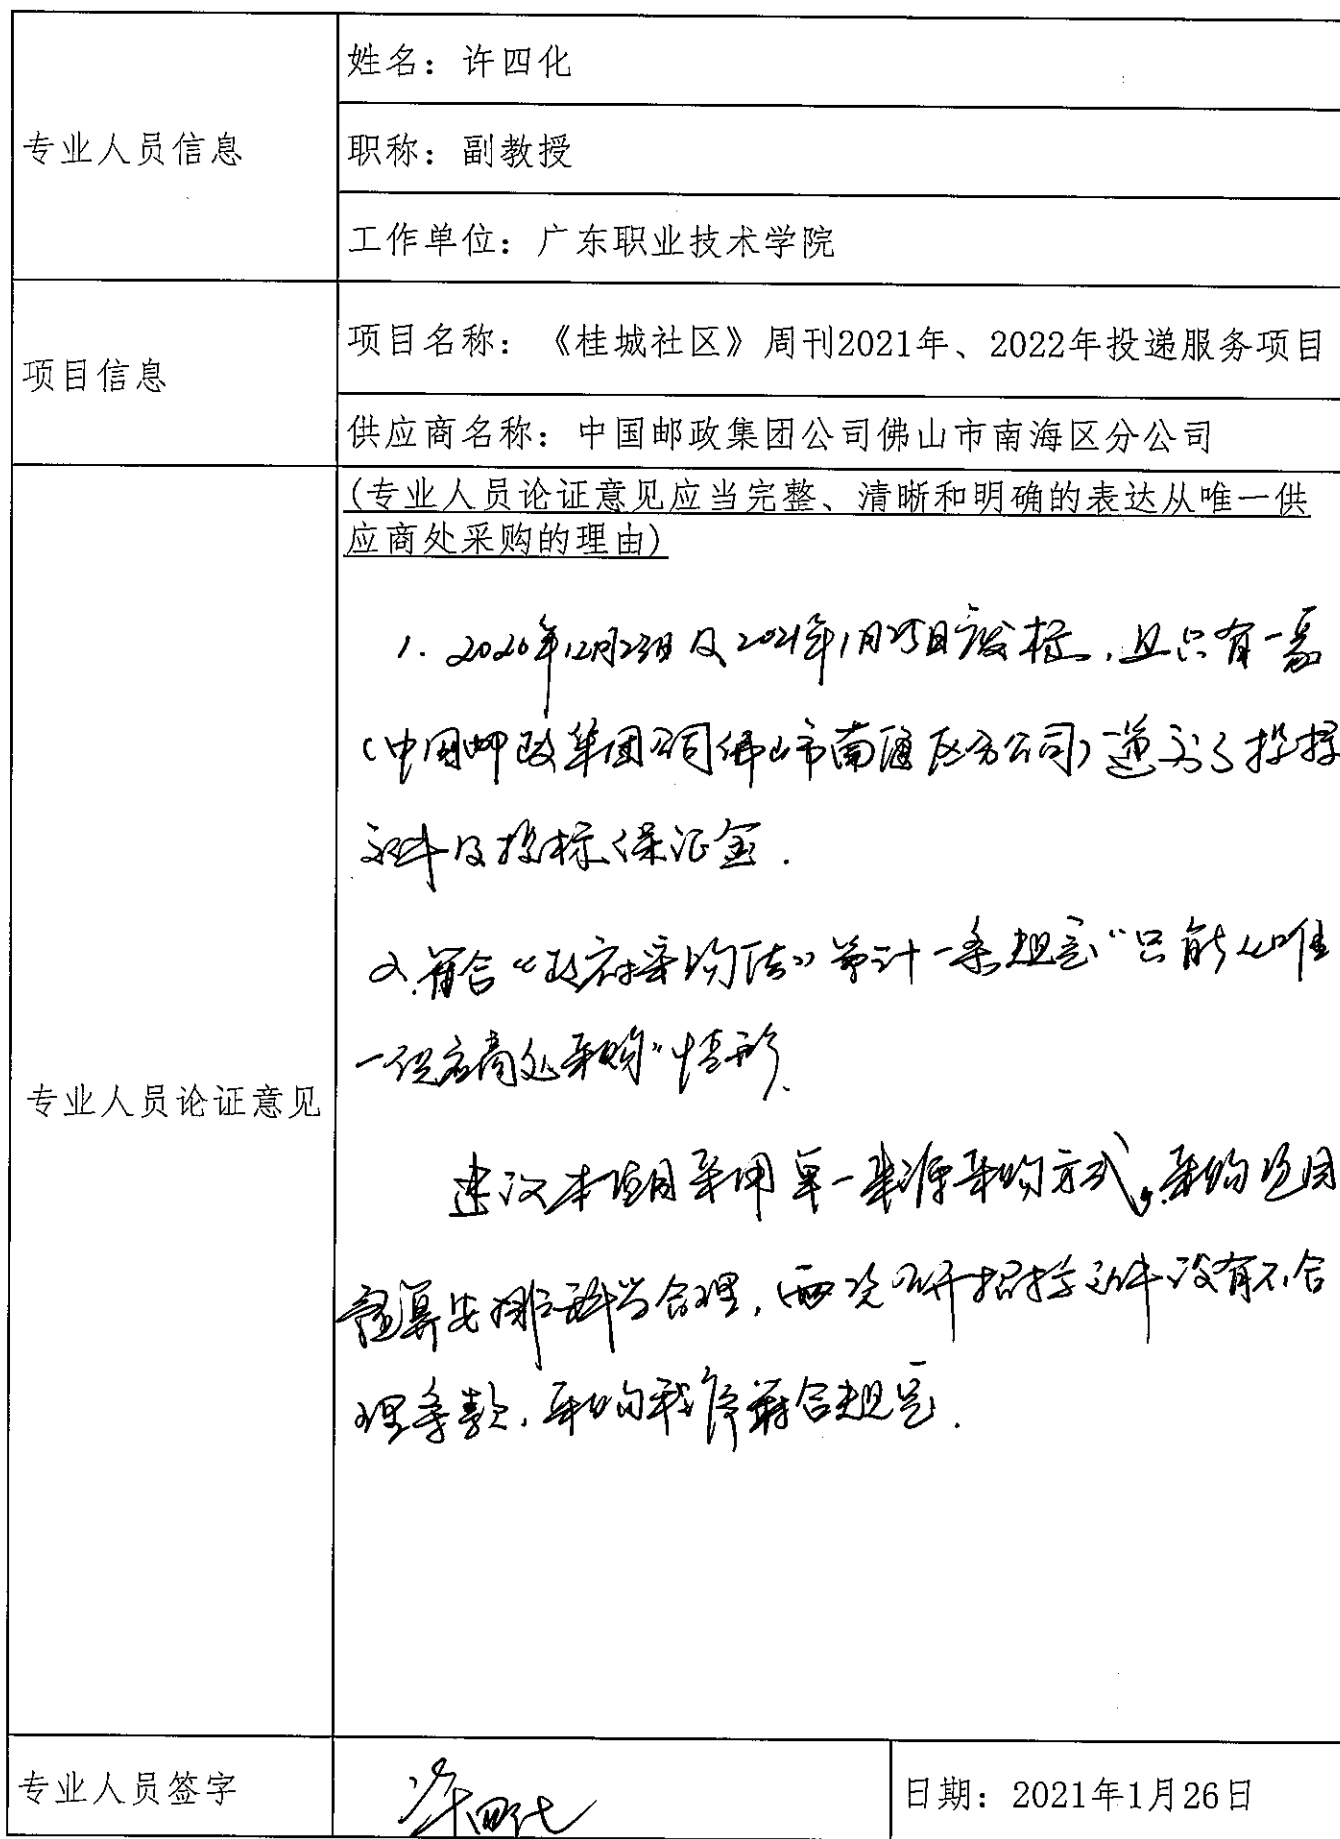 专业人员信息
姓名：许四化
职称：副教授
工作单位：广东职业技术学院
项目信息
项目名称：《桂城社区》周刊2021年、2022年投递服务项目
供应商名称：中国邮政集团公司佛山市南海区分公司
专业人员论证意见
(专业人员论证意见应当完整、清晰和明确的表达从唯一供
应商处采购的理由)
1. 2020年12月23日及2021年1月25日废标，且只有一家
（中国邮政集团公司佛山市南海区分公司）递交了投标
文件及投标保证金.
2.符合《政府采购法》第卅一条规定“只能从唯
一供应商处采购”情形.
建议本项目采用单一来源采购方式。采购项目
预算安排科学合理，两次公开招标文件没有不合
理条款，采购程序符合规定.
专业人员签字
许四化
日期：2021年1月26日